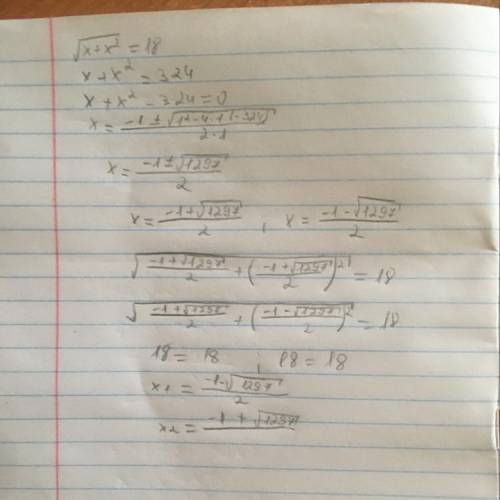 √(x+x²) = 18
x + x² = 324
x + x² - 324 = 0
x = (-1 ± √(1² - 4·1·(-324))) / (2·1)
x = (-1 ± √1297) / 2
x = (-1 + √1297) / 2 , x = (-1 - √1297) / 2
√((-1 + √1297) / 2 + ((-1 + √1297) / 2)²) = 18
√((-1 + √1297) / 2 + ((-1 - √1297) / 2)²) = 18
18 = 18 ; 18 = 18
x₁ = (-1 - √1297) / 2
x₂ = (-1 + √1297) /